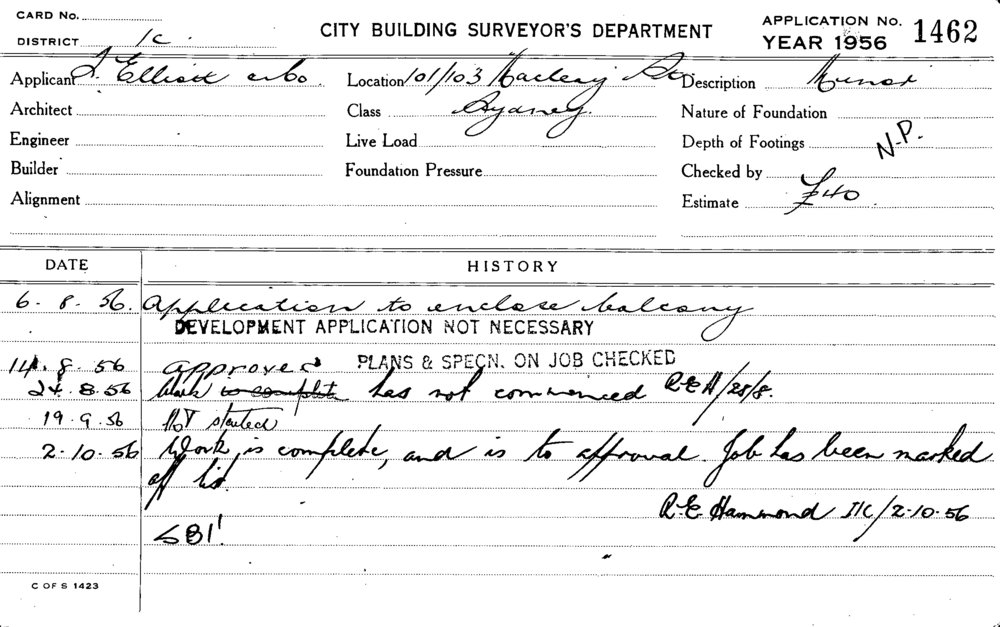 CARD No.
DISTRICT 1c.
CITY BUILDING SURVEYOR'S DEPARTMENT
APPLICATION No. 1462
YEAR 1956
Applicant Elliott
Location 101/103 Macleay St
Description Minor
Architect
Class Sydney.
Nature of Foundation
Engineer
Live Load
Depth of Footings N.P.
Builder
Foundation Pressure
Checked by
Alignment
Estimate £40
DATE HISTORY
6. 8. 56. Application to enclose balcony
DEVELOPMENT APPLICATION NOT NECESSARY
14. 8. 56 approved PLANS & SPECN. ON JOB CHECKED
24. 8. 56 Work is complete has not commenced R.E.H/28/8.
19. 9. 56 Not started
2. 10. 56 Work, is complete, and is to approval. Job has been marked
off list.
R.E. Hammond 1/c/2.10.56
C OF S 1423